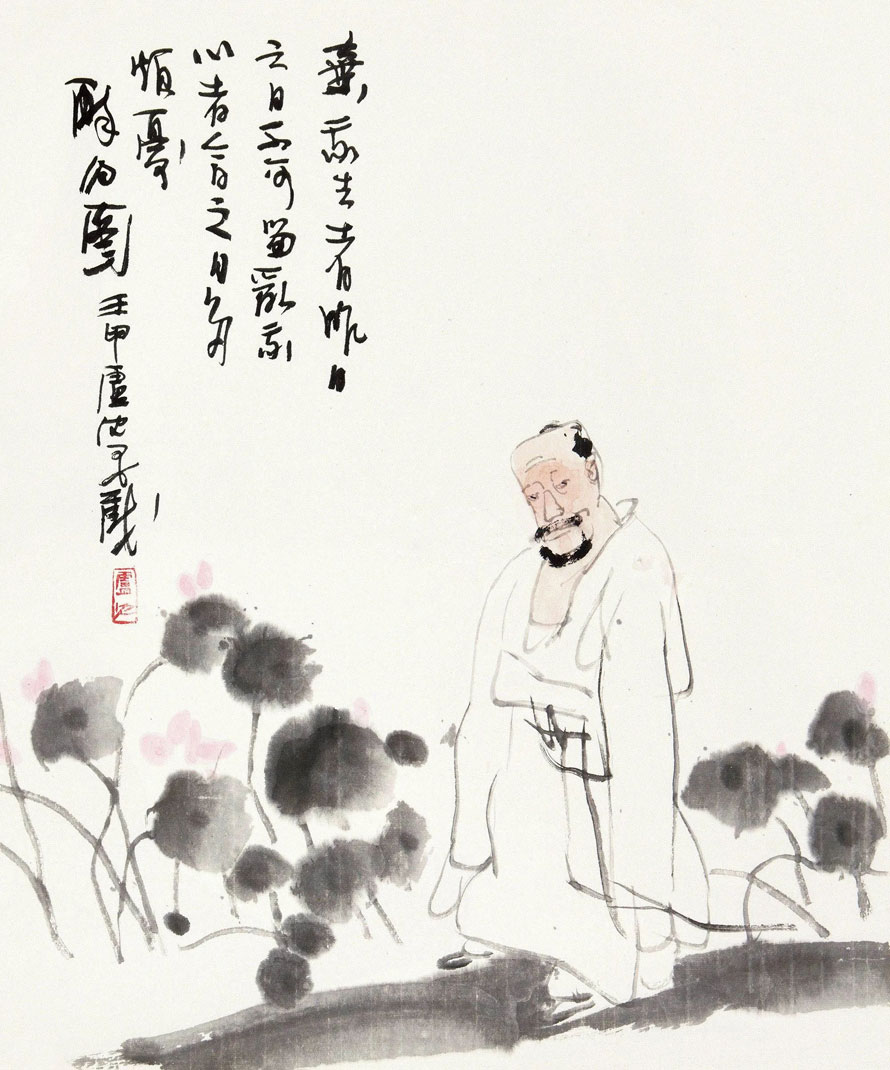 棄我去者昨日
之日不可留亂我
心者今之日多
煩憂
醉白圖 壬申盧沈
盧沈